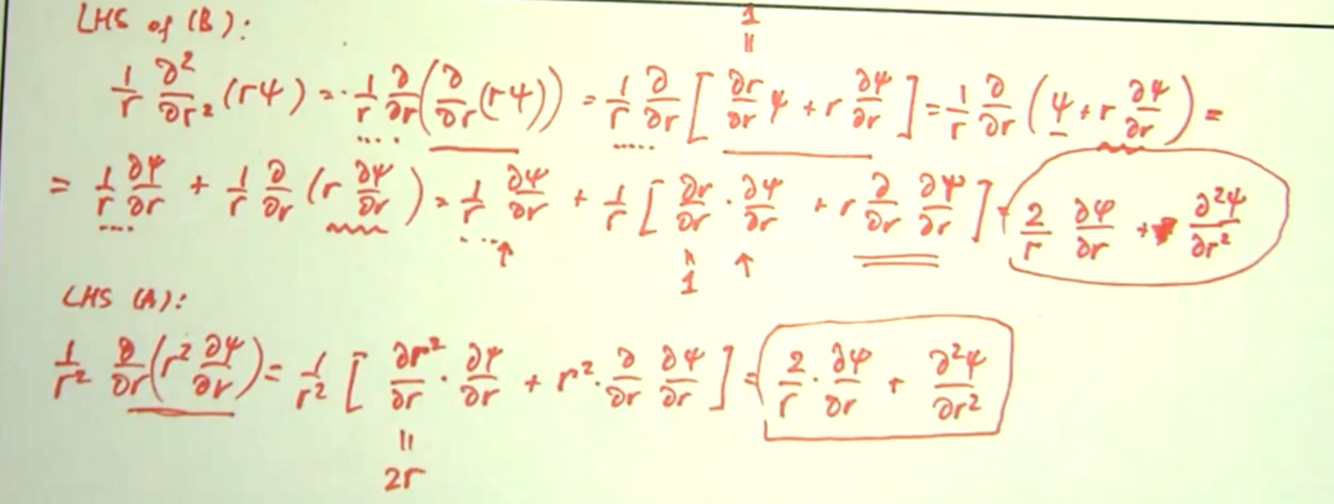 LHS of (B):
1
||
1/r ∂²/∂r² (rψ) = 1/r ∂/∂r (∂/∂r (rψ)) = 1/r ∂/∂r [ ∂r/∂r ψ + r ∂ψ/∂r ] = 1/r ∂/∂r (ψ + r ∂ψ/∂r) =
= 1/r ∂ψ/∂r + 1/r ∂/∂r (r ∂ψ/∂r) = 1/r ∂ψ/∂r + 1/r [ ∂r/∂r · ∂ψ/∂r + r ∂/∂r ∂ψ/∂r ] = 2/r ∂ψ/∂r + ∂²ψ/∂r²
1
LHS (A):
1/r² ∂/∂r (r² ∂ψ/∂r) = 1/r² [ ∂r²/∂r · ∂ψ/∂r + r² · ∂/∂r ∂ψ/∂r ] = 2/r · ∂ψ/∂r + ∂²ψ/∂r²
||
2r